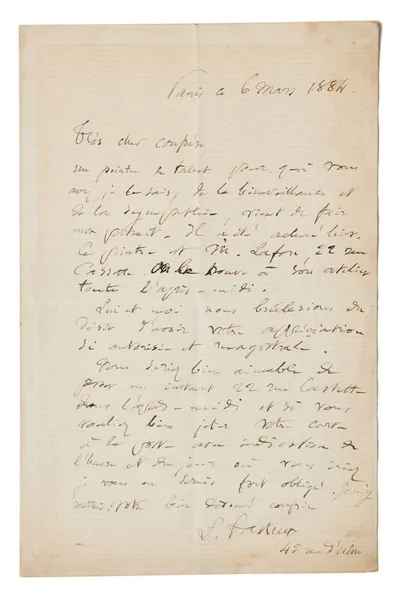 Paris ce 6 Mars 1884.
Très cher confrère
un peintre de talent pour qui vous
avez, je le sais, de la bienveillance et
de la sympathie, vient de faire
mon portrait. Il a été achevé hier.
Ce peintre est M. Lafon 22 rue
Cassette. On le trouve à son atelier
toute l'après-midi.
Lui et moi nous brûlerions du
désir d'avoir votre appréciation
si autorisée et magistrale.
Vous seriez bien aimable de
passer un instant 22 rue Cassette
dans l'après-midi et si vous
vouliez bien jeter votre carte
à la poste avec indication de
l'heure et du jour où vous iriez
je vous en serais fort obligé.
Votre bien dévoué confrère
L. Pasteur
45 rue d'Ulm